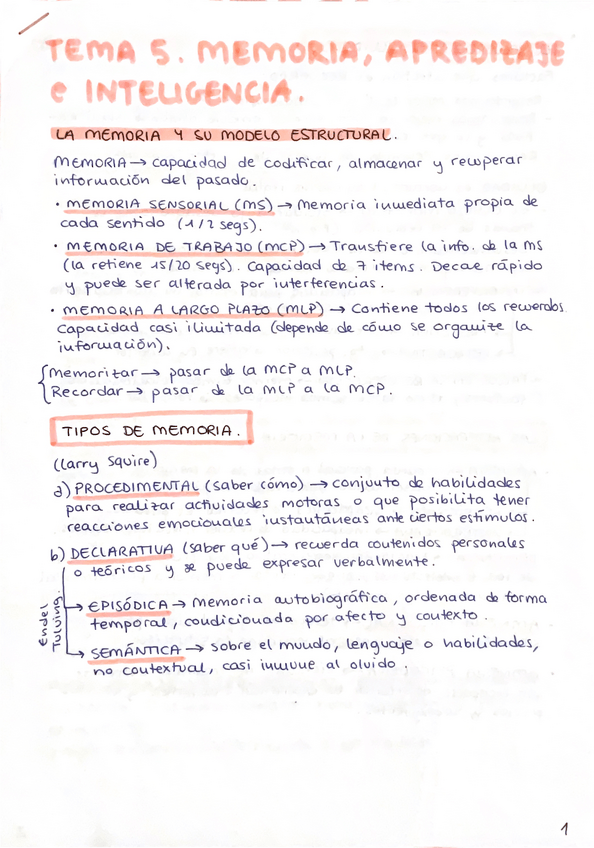 TEMA 5. MEMORIA, APREDIZAJE
e INTELIGENCIA.
LA MEMORIA Y SU MODELO ESTRUCTURAL.
MEMORIA → capacidad de codificar, almacenar y recuperar
información del pasado.
· MEMORIA SENSORIAL (MS) → Memoria inmediata propia de
cada sentido (1/2 segs).
· MEMORIA DE TRABAJO (MCP) → Transfiere la info. de la MS
(la retiene 15/20 segs). Capacidad de 7 items. Decae rápido
y puede ser alterada por interferencias.
· MEMORIA A LARGO PLAZO (MLP) → Contiene todos los recuerdos
capacidad casi ilimitada (depende de cómo se organize la
información).
Memorizar → pasar de la MCP a MLP.
Recordar → pasar de la MLP a la MCP.
TIPOS DE MEMORIA.
(Larry Squire)
a) PROCEDIMENTAL (saber cómo) → conjunto de habilidades
para realizar actividades motoras o que posibilita tener
reacciones emocionales instantáneas ante ciertos estímulos.
b) DECLARATIVA (saber qué) → recuerda contenidos personales
o teóricos y se puede expresar verbalmente.
Endel
Tulving.
→ EPISÓDICA → Memoria autobiográfica, ordenada de forma
temporal, condicionada por afecto y contexto.
→ SEMÁNTICA → sobre el mundo, lenguaje o habilidades,
no contextual, casi inmune al olvido.
1